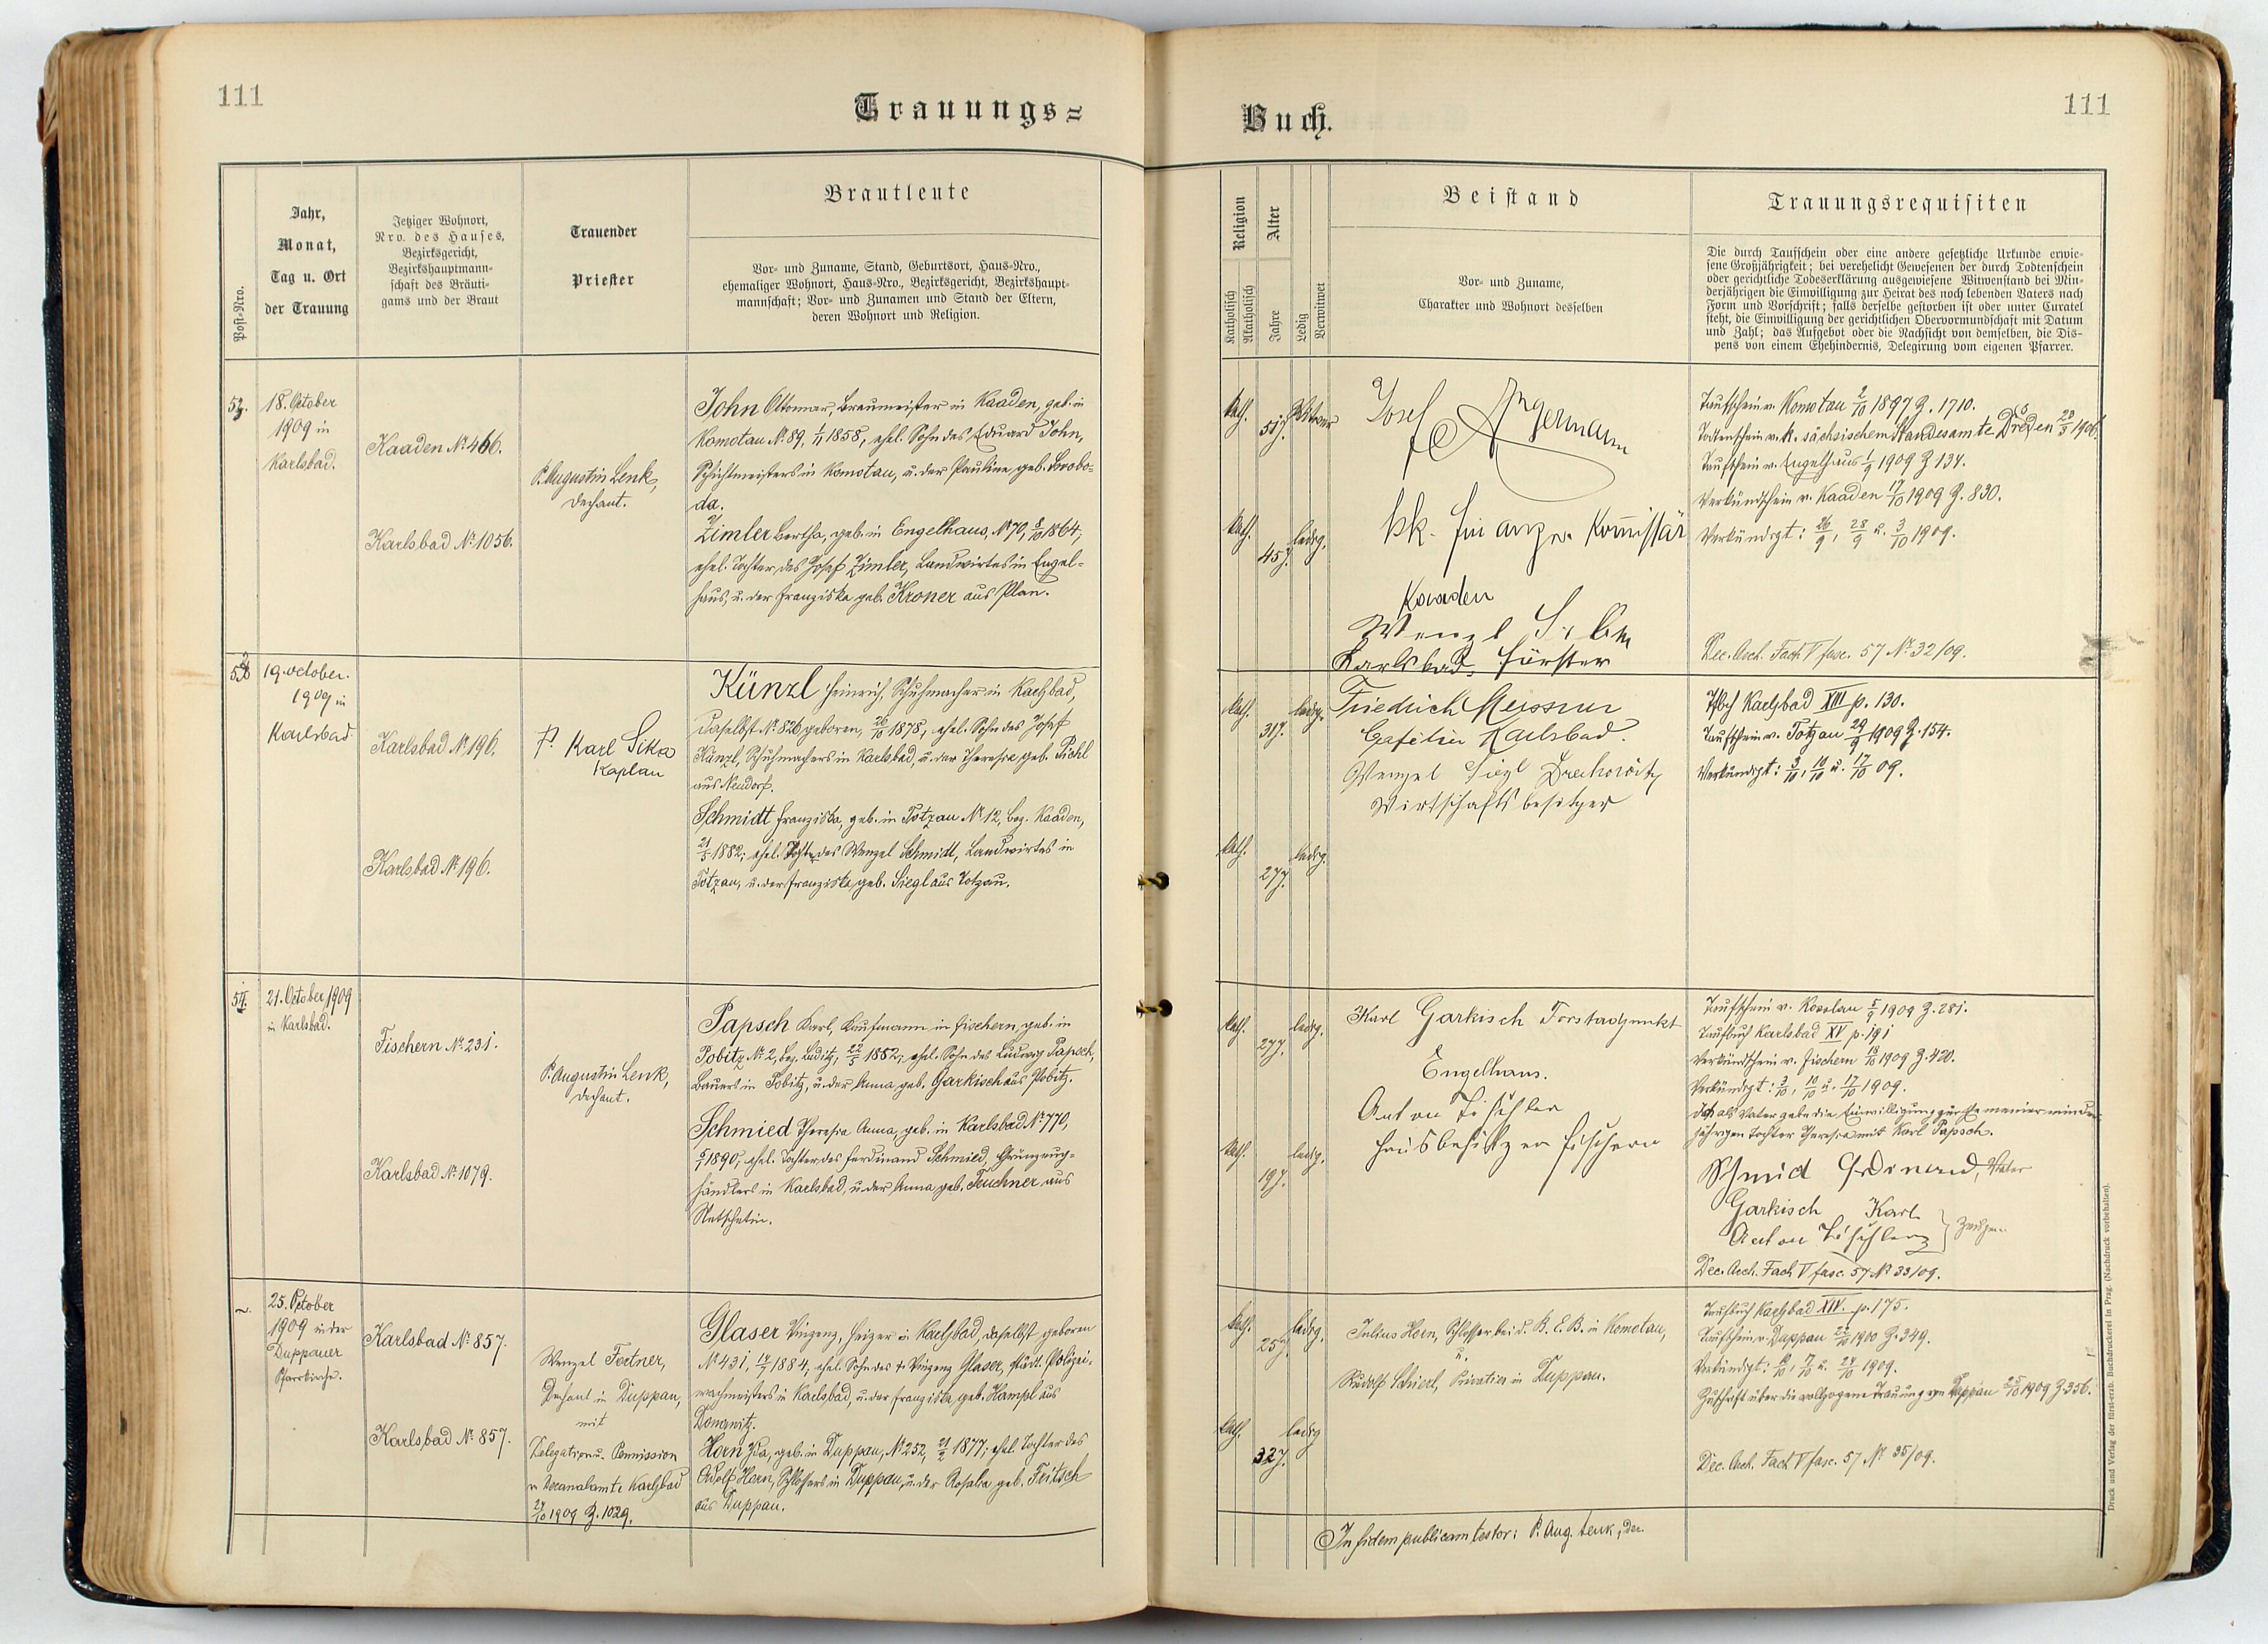 111
Trauungs=
Post=Nro.
Jahr,
Monat,
Tag u. Ort
der Trauung
Jetziger Wohnort,
Nro. des Hauses,
Bezirksgericht,
Bezirkshauptmann=
schaft des Bräuti=
gams und der Braut
Trauender
Priester
Brautleute
Vor= und Zuname, Stand, Geburtsort, Haus=Nro.,
ehemaliger Wohnort, Haus=Nro., Bezirksgericht, Bezirkshaupt=
mannschaft; Vor= und Zunamen und Stand der Eltern,
deren Wohnort und Religion.
18. October
1909 in
Karlsbad.
Kaaden Nº 466.
Karlsbad Nº 1056.
P. Augustin Lenk,
Dechant.
John Ottomar, Braumeister in Kaaden, geb. in
Komotau Nº 89, 1/11 1858, ehel. Sohn des Eduard John,
Schichtmeisters in Komotau, u. der Pauline geb. Svobo=
da.
Zimler Bertha, geb. in Engelhaus, Nº 70, 8/10 1864,
ehel. Tochter des Josef Zimler, Landwirtes in Engel=
haus, u. der Franziska geb. Kroner aus Plan.
53
19. october.
1909 in
Karlsbad.
Karlsbad Nº 196.
Karlsbad Nº 196.
P. Karl Sika
Kaplan
Künzl Heinrich, Schuhmacher in Karlsbad,
daselbst Nº 826 geboren, 26/10 1878, ehel. Sohn des Josef
Künzl, Schuhmachers in Karlsbad, u. der Theresia geb. Pichl
aus Neudorf.
Schmidt Franziska, geb. in Totzau Nº 12, Bez. Kaaden,
21/5 1882; ehel. Tochter des Wenzel Schmidt, Landwirtes in
Totzau, u. der Franziska geb. Siegl aus Totzau.
54.
21. October 1909
in Karlsbad.
Fischern Nº 231.
Karlsbad Nº 1079.
P. Augustin Lenk,
Dechant.
Papsch Karl, Kaufmann in Fischern, geb. in
Pobitz Nº 2, Bez. Luditz, 22/5 1882, ehel. Sohn des Ludwig Papsch,
Bauers in Pobitz, u. der Anna geb. Garkisch aus Pobitz.
Schmied Theresia Anna, geb. in Karlsbad Nº 770,
1890, ehel. Tochter des Ferdinand Schmied, Grünzeug=
händlers in Karlsbad, u. der Anna geb. Teuchner aus
Netschetin.
25. October
1909 in der
Duppauer
Pfarrkirche.
Karlsbad Nº 857.
Karlsbad Nº 857.
Wenzel Fortner,
Dechant in Duppau,
mit
Delegation u. Permission
v. Decanalamte Karlsbad
24/10 1909 Z. 1029.
Glaser Vinzenz, Heizer in Karlsbad, daselbst geboren
Nº 431, 1884, ehel. Sohn des + Vinzenz Glaser, städt. Polizei-
wachmeisters in Karlsbad, u. der Franziska, geb. Hampl aus
Horn Ida, geb. in Duppau, Nº 252, 21/2 1877; ehel. Tochter des
Adolf Horn, Schlossers in Duppau, u. der Rosalia geb. Fritsch
aus Duppau.
Buch.
111
Religion
Katholisch
Akatholisch
Alter
Jahre
Ledig
Verwitwet
Beistand
Vor= und Zuname,
Charakter und Wohnort desselben
Trauungsrequisiten
Die durch Taufschein oder eine andere gesetzliche Urkunde erwie=
sene Großjährigkeit; bei verehelicht Gewesenen der durch Todtenschein
oder gerichtliche Todeserklärung ausgewiesene Witwenstand bei Min=
derjährigen die Einwilligung zur Heirat des noch lebenden Vaters nach
Form und Vorschrift; falls derselbe gestorben ist oder unter Curatel
steht, die Einwilligung der gerichtlichen Obervormundschaft mit Datum
und Zahl; das Aufgebot oder die Nachsicht von demselben, die Dis=
pens von einem Ehehindernis, Delegirung vom eigenen Pfarrer.
kath.
51 J.
Witwer
kath.
45 J.
ledig.
Josef Angermann
kk. Finanz Kommissär
Kaaden
Wenzl
Karlsbad, Förster
Taufschein v. Komotau 2/10 1897 Z. 1710.
Todtenschein v. k. sächsischem Standesamte Dresden 23/3 1906.
Taufschein v. Engelhaus 1/9 1909 Z 134.
Verkündschein v. Kaaden 17/10 1909 Z. 830.
Verkündigt: 26/9, 28/9 u. 3/10 1909.
Dec. Arch. Fach V fasc. 57 Nº 32/09.
kath.
31 J.
ledig.
kath.
27 J.
ledig.
Friedrich Meissner
Cafétier Karlsbad.
Wenzel Siegl
Wirtschaftsbesitzer
Tfbch Karlsbad XIII p. 130.
Taufschein v. Totzau 29/9 1909 Z. 154.
Verkündigt: 3/10, 10/10 u. 17/10 09.
kath.
27 J.
ledig.
kath.
19 J.
ledig.
Karl Garkisch Forstadjunkt
Engelhaus.
Anton
Hausbesitzer Fischern
Taufschein v. Kosslau 5/9 1909 Z. 281.
Taufbuch Karlsbad XV p. 191
Verkündschein v. Fischern 18/10 1909 Z. 420.
Verkündigt: 3/10, 10/10 u. 17/10 1909.
Ich als Vater gebe die Einwilligung zur Ehe meiner minder=
jährigen Tochter Theresia mit Karl Papsch.
Schmid Ferdinand, Vater
Garkisch Karl
Anton
Zeugen
Dec. Arch. Fach V fasc. 57 Nº 33/09.
kath.
25 J.
ledig.
kath.
32 J.
ledig
Julius Horn, Schlosser bei d. B. E. B. in Komotau,
u.
Rudolf Schierl, Privatier in Duppau.
Taufbuch Karlsbad XIV. p. 175.
Taufschein v. Duppau 1900 Z. 349.
Verkündigt: 10/10, 17/10 u. 24/10 1909.
Zuschrift über die vollzogene Trauung von Duppau 25/10 1909 Z. 356.
Dec. Arch. Fach V fasc. 57 Nº 35/09.
In fidem publicam testor: P. Aug. Lenk, Dec.
Druck und Verlag der fürst-erzb. Buchdruckerei in Prag. (Nachdruck vorbehalten).